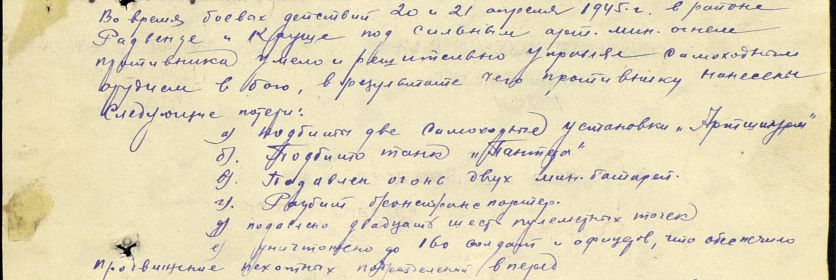 Во время боевых действий 20 и 21 апреля 1945 г. в районе
и под сильным арт. мин. огнем
противника умело и решительно управляя самоходным
орудием в бою, в результате чего противнику нанесены
следующие потери:
а) подбиты две самоходные установки „Артштурм"
б). Подбито танк „Пантера"
в). Подавлен огонь двух мин. батарей.
г). Разбит бронетранспортер.
д) подавлено двадцать шесть пулеметных точек
е) уничтожено до 160 солдат и офицеров, что обеспечило
продвижение пехотных подразделений вперед